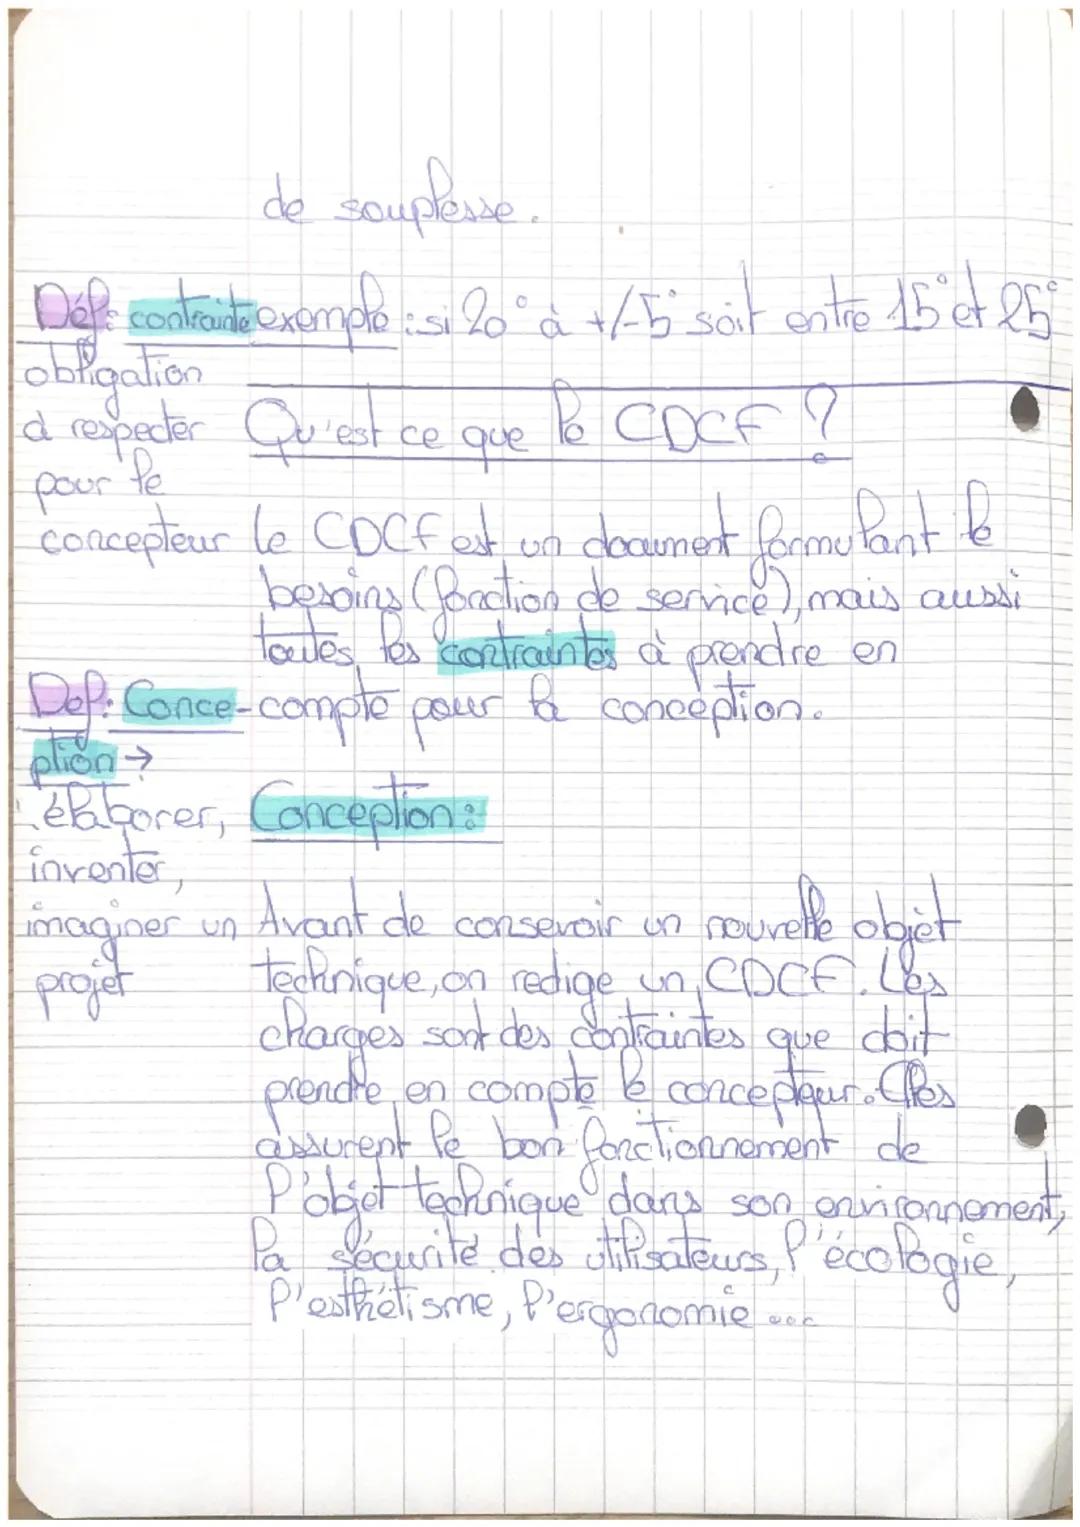 de souplesse.
Déf: contrainte
obligation
à respecter
pour le
concepteur
exemple : si 20° à +/-5° soit entre 15° et 25°
Qu'est ce que le CDCF ?
le CDCF est un document formulant le
besoins (fonction de service), mais aussi
toutes les contraintes à prendre en
compte pour la conception.
Def: Conce-
ption →
élaborer,
inventer,
imaginer un
projet
Conception :
Avant de consevoir un nouvelle objèt
technique, on redige un CDCF. Les
charges sont des contraintes que doit
prendre en compte le concepteur. Elles
assurent le bon fonctionnement de
l'objet technique dans son environnement,
la sécurité des utilisateurs, l'écologie,
l'esthétisme, l'ergonomie ...